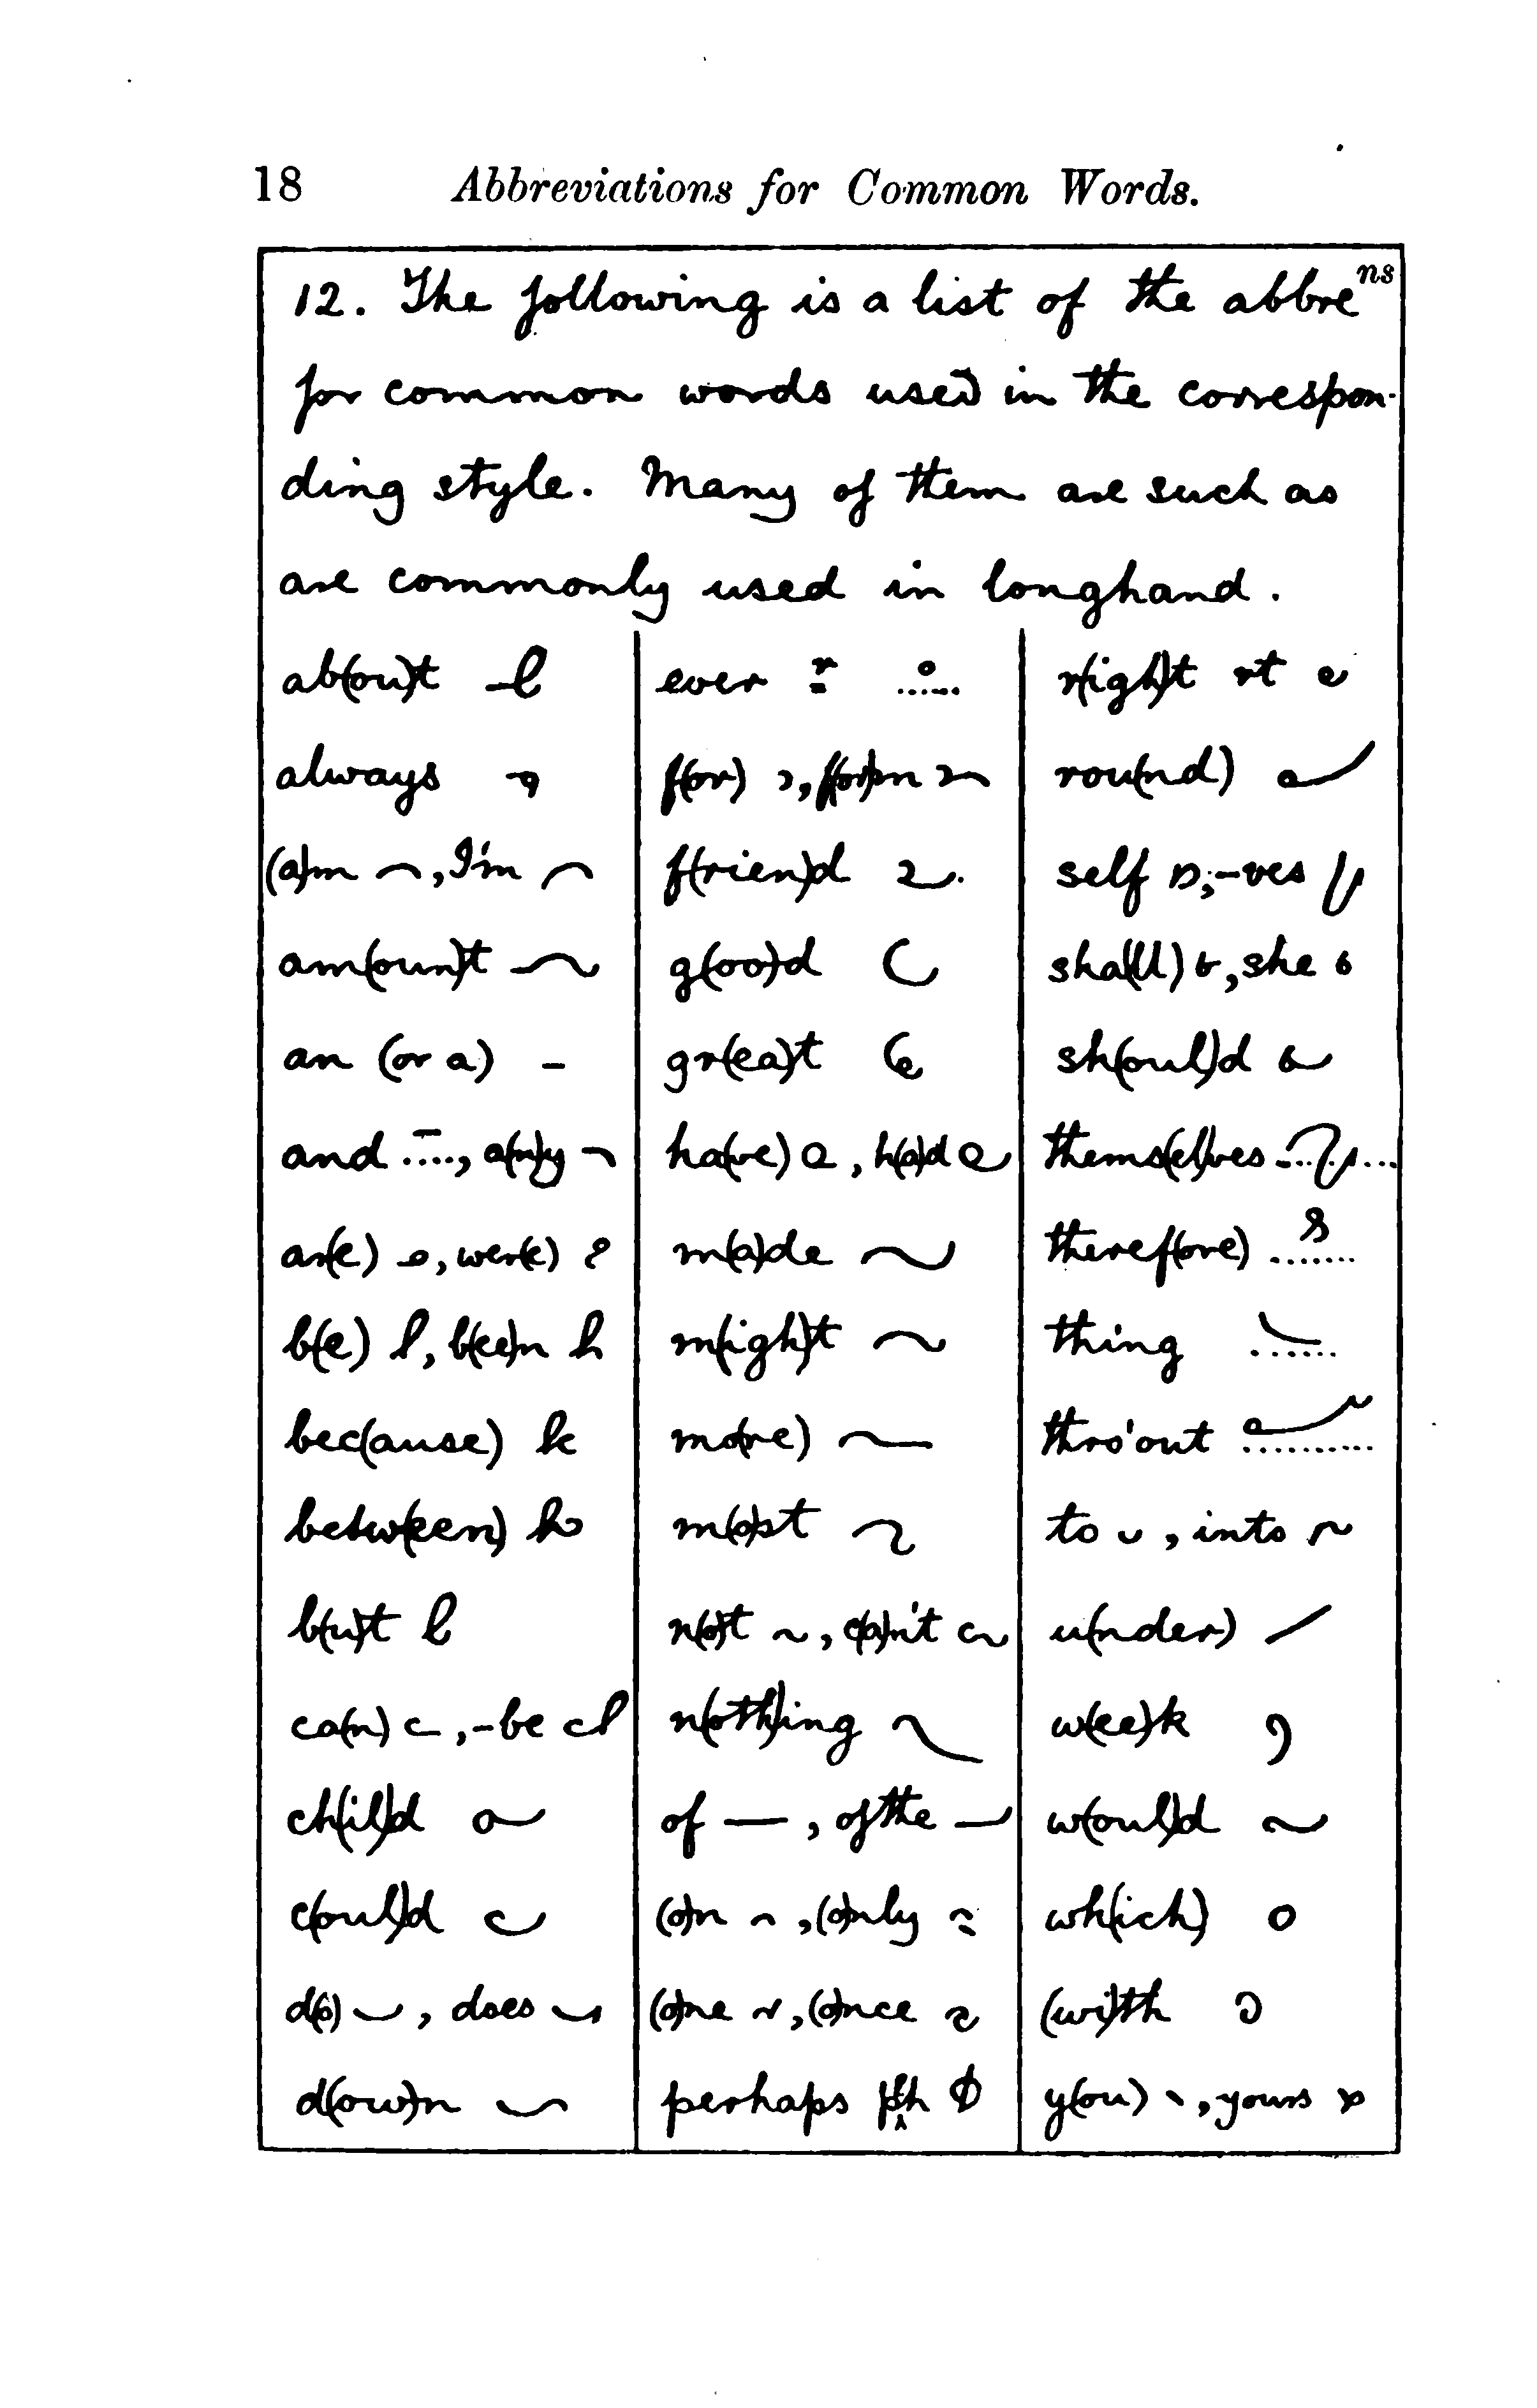 18 Abbreviations for Common Words.
12. The following is a list of the abbre^ns
for common words used in the correspon-
ding style. Many of them are such as
are commonly used in longhand.
ab(ou)t
always
(a)m , I'm
am(oun)t
an (or a) -
and , a(n)y
ar(e) , wer(e)
b(e) , b(ee)n
bec(ause)
betw(een)
b(u)t
ca(n) , -be
ch(il)d
c(oul)d
d(o) , does
d(ow)n
ever
f(or) , f(or)m
f(rien)d
g(oo)d
gr(ea)t
ha(ve) , h(a)d
m(a)de
m(igh)t
mo(re)
m(o)st
n(o)t , c(a)n't
n(oth)ing
of — , of the
(o)n , (o)nly
(o)ne , (o)nce
perhaps
r(igh)t rt
rou(nd)
self , -ves
sha(ll) , she
sh(oul)d
thems(el)ves
theref(ore)
thing
thro'out
to , into
u(nder)
w(ee)k
w(oul)d
wh(ich)
(wi)th
y(ou) , yours